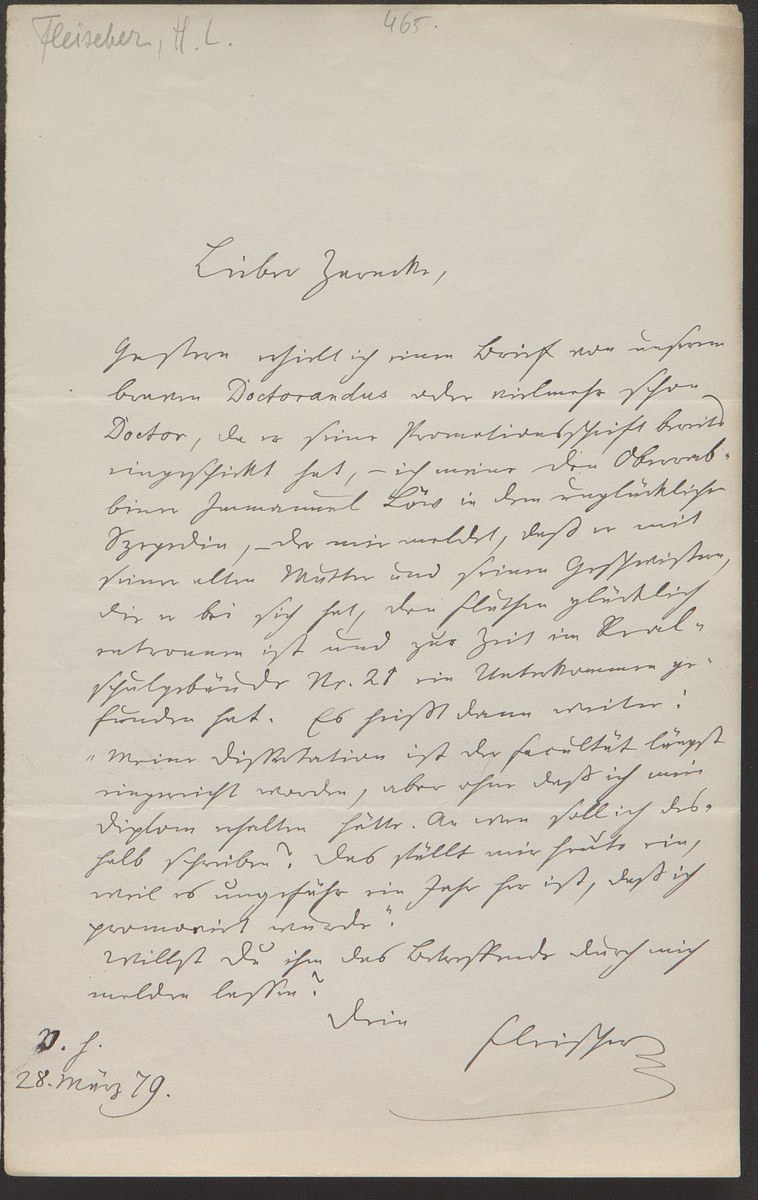 Fleischer, H. L.
465.
Lieber Zarncke,
Gestern erhielt ich einen Brief von unserem
braven Doctorandus oder vielmehr schon
Doctor, da er seine Promotionsschrift bereits
eingeschickt hat, – ich meine den Oberrab-
biner Immanuel Löw in dem unglücklichen
Szegedin, – der mir meldet, daß er mit
seiner alten Mutter und seinen Geschwistern,
die er bei sich hat, den Fluthen glücklich
entronnen ist und zur Zeit im Real-
schulgebäude Nr. 21 ein Unterkommen ge-
funden hat. Es heißt dann weiter:
„Meine Dissertation ist der Facultät längst
eingereicht worden, aber ohne daß ich mein
Diplom erhalten hätte. An wen soll ich des-
halb schreiben? Das fällt mir heute ein,
weil es ungefähr ein Jahr her ist, daß ich
promovirt wurde“.
Willst Du ihm das Betreffende durch mich
melden lassen?
Dein
Fleischer
V. H.
28. März 79.